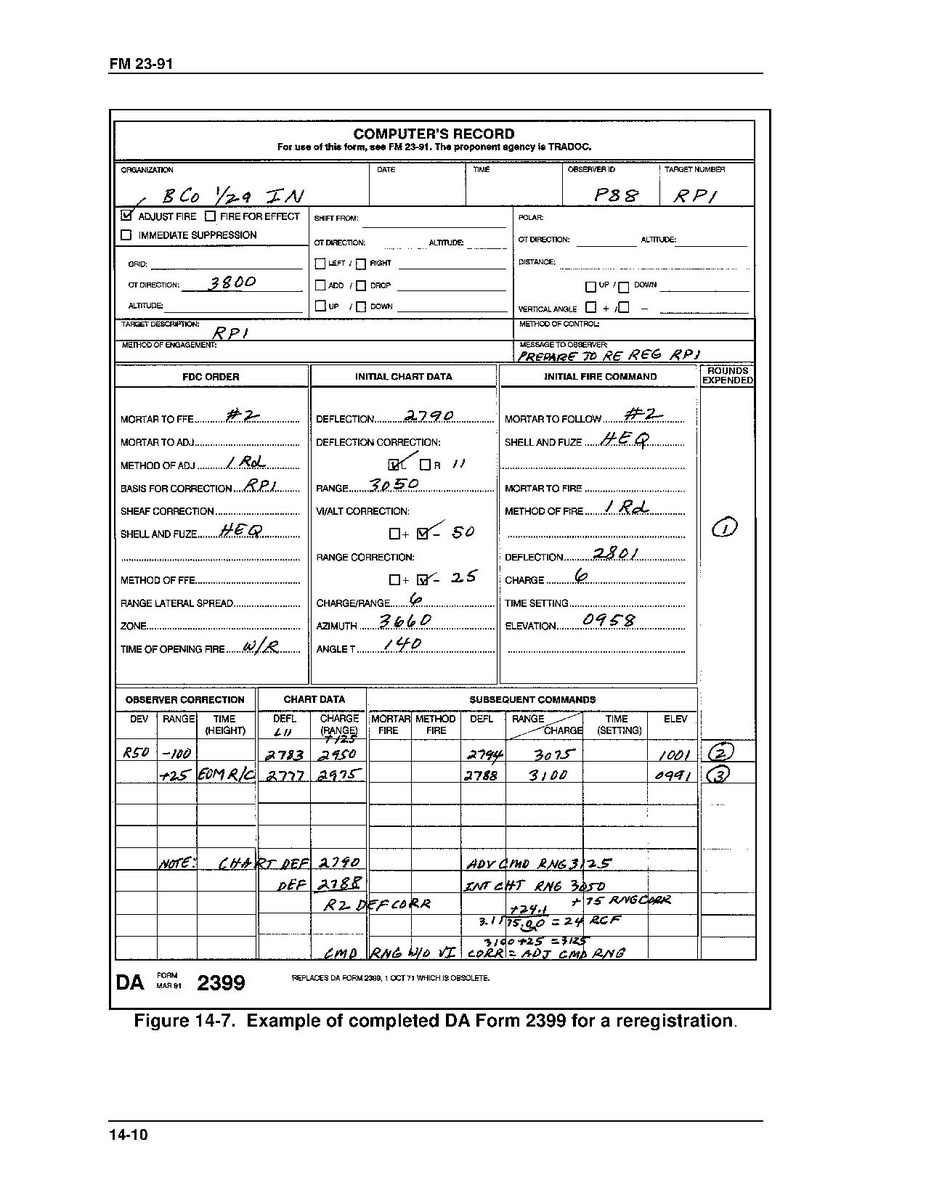 FM 23-91
COMPUTER'S RECORD
For use of this form, see FM 23-91. The proponent agency is TRADOC.
ORGANIZATION DATE TIME OBSERVER ID TARGET NUMBER
B Co 1/29 IN P88 RP1
ADJUST FIRE FIRE FOR EFFECT SHIFT FROM: POLAR:
IMMEDIATE SUPPRESSION OT DIRECTION: ALTITUDE: OT DIRECTION: ALTITUDE:
GRID: LEFT / RIGHT DISTANCE:
OT DIRECTION: 3800 ADD / DROP UP / DOWN
ALTITUDE: UP / DOWN VERTICAL ANGLE + / -
TARGET DESCRIPTION: RP1 METHOD OF CONTROL:
METHOD OF ENGAGEMENT: MESSAGE TO OBSERVER: PREPARE TO RE REG RP1
FDC ORDER INITIAL CHART DATA INITIAL FIRE COMMAND ROUNDS EXPENDED
MORTAR TO FFE #2 DEFLECTION 2790 MORTAR TO FOLLOW #2
MORTAR TO ADJ DEFLECTION CORRECTION: SHELL AND FUZE HEQ
METHOD OF ADJ 1 Rd L R 11
BASIS FOR CORRECTION RP1 RANGE 3050 MORTAR TO FIRE
SHEAF CORRECTION VI/ALT CORRECTION: METHOD OF FIRE 1 Rd
SHELL AND FUZE HEQ + - 50 1
RANGE CORRECTION: DEFLECTION 2801
METHOD OF FFE + - 25 CHARGE 6
RANGE LATERAL SPREAD CHARGE/RANGE 6 TIME SETTING
ZONE AZIMUTH 3660 ELEVATION 0958
TIME OF OPENING FIRE W/R ANGLE T 140
OBSERVER CORRECTION CHART DATA SUBSEQUENT COMMANDS
DEV RANGE TIME (HEIGHT) DEFL L11 CHARGE (RANGE) +125 MORTAR FIRE METHOD FIRE DEFL RANGE CHARGE TIME (SETTING) ELEV
R50 -100 2783 2950 2794 3075 1001 2
+25 EOM R/C 2777 2975 2788 3100 0991 3
NOTE: CHART DEF 2790 ADV CMD RNG 3125
DEF 2788 INT CHT RNG 3050
R2 DEF CORR +75 RNG CORR
+24.1
3.1 75.00 = 24 RCF
3100 +25 = 3125
CMD RNG W/O VI CORR = ADJ CMD RNG
DA FORM MAR 91 2399 REPLACES DA FORM 2399, 1 OCT 71 WHICH IS OBSOLETE.
Figure 14-7. Example of completed DA Form 2399 for a reregistration.
14-10